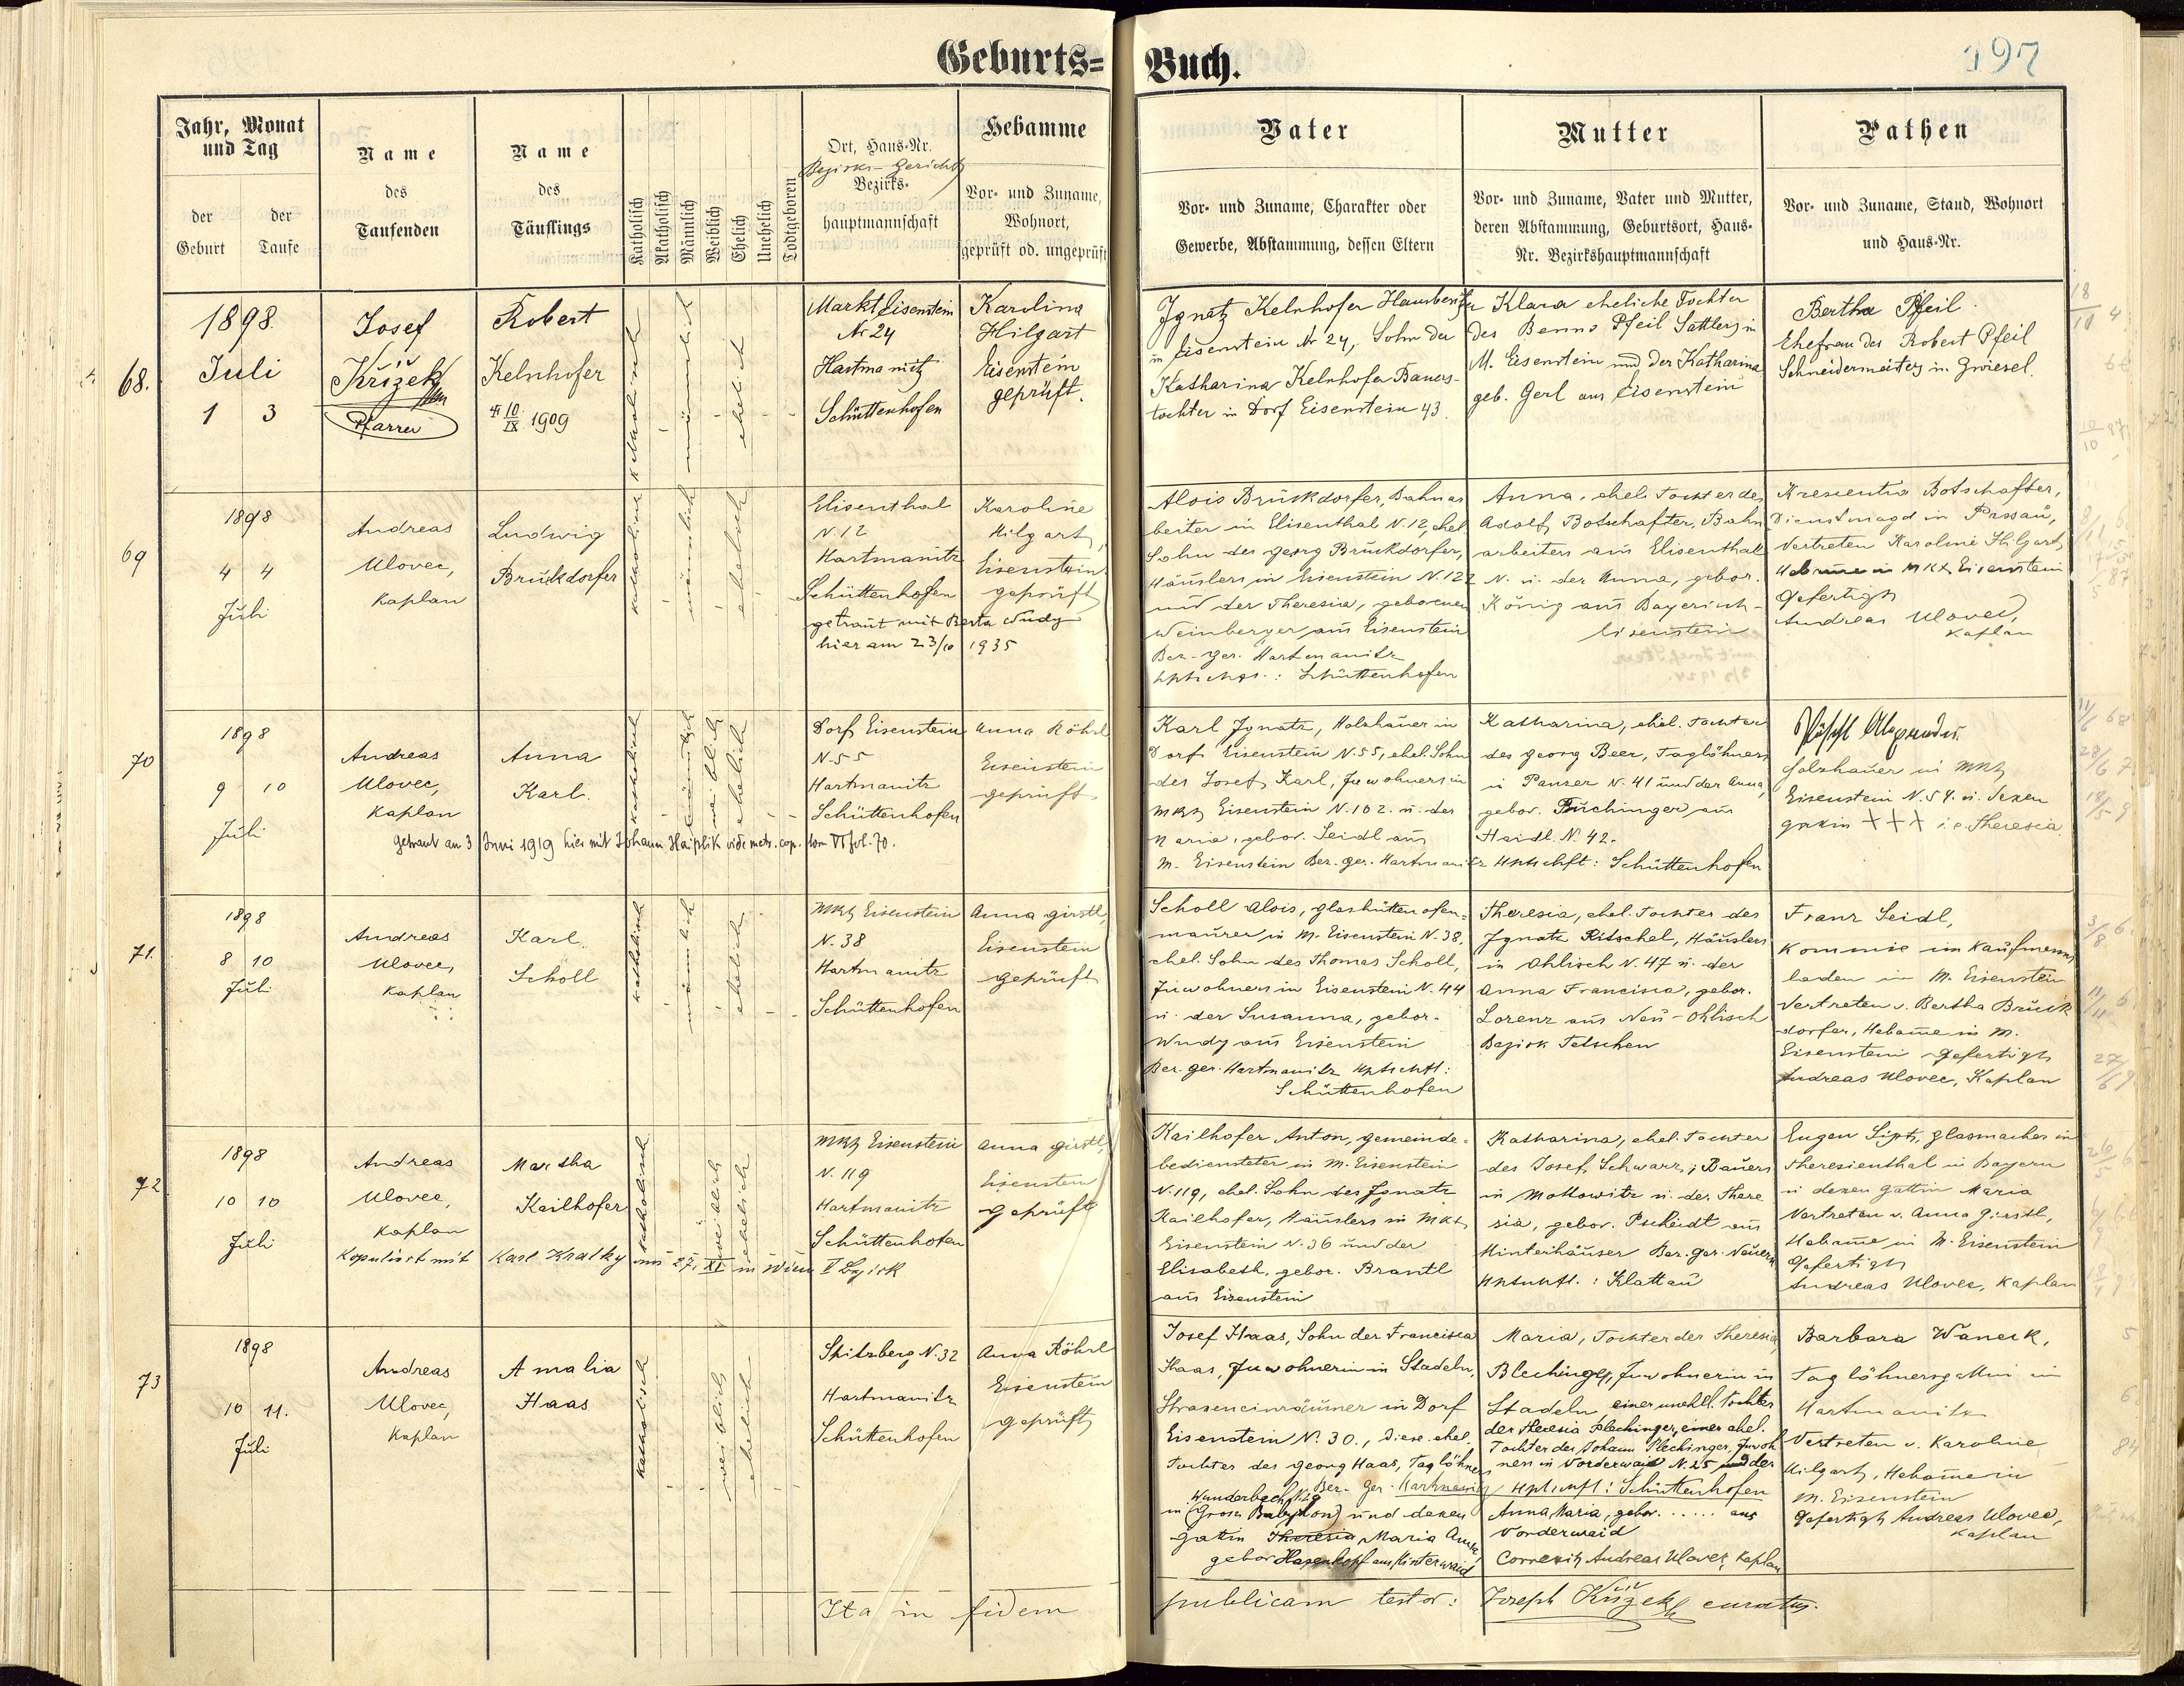 Geburts=Buch.
197
Jahr, Monat und Tag
der Geburt
der Taufe
Name
des
Taufenden
Name
des
Täuflings
Katholisch
Akatholisch
Männlich
Weiblich
Ehelich
Unehelich
Todtgeboren
Ort, Haus-Nr.
Bezirks-Gericht
Bezirks-
hauptmannschaft
Hebamme
Vor- und Zuname,
Wohnort,
geprüft od. ungeprüft
Vater
Vor- und Zuname, Charakter oder
Gewerbe, Abstammung, dessen Eltern
Mutter
Vor- und Zuname, Vater und Mutter,
deren Abstammung, Geburtsort, Haus-
Nr. Bezirkshauptmannschaft
Pathen
Vor- und Zuname, Stand, Wohnort
und Haus-Nr.
68.
1898.
Juli
1 3
Josef
Křížek
Pfarrer
Robert
Kelnhofer
10/IX 1909
katholisch
männlich
ehelich
Markt Eisenstein
Nr 24
Hartmanitz
Schüttenhofen
Karolina
Hilgart
Eisenstein
geprüft.
Ignatz Kelnhofer Hausbesitzer
in Eisenstein Nr 24, Sohn der
Katharina Kelnhofer Bauers-
tochter in Dorf Eisenstein 43.
Klara eheliche Tochter
des Benno Pfeil Sattlers in
M. Eisenstein und der Katharina
geb. Gerl aus Eisenstein
Bertha Pfeil
Ehefrau des Robert Pfeil
Schneidermeisters in Zwiesel.
69
1898
4 4
Juli
Andreas
Ulovec,
Kaplan
Ludwig
Bruckdorfer
katholisch
männlich
ehelich
Elisenthal
N. 12
Hartmanitz
Schüttenhofen
getraut mit Berta Wudy
hier am 23/10 1935
Karoline
Hilgart,
Eisenstein
geprüft
Alois Bruckdorfer, Bahnar
beiter in Elisenthal N. 12, ehel
Sohn des Georg Bruckdorfer,
Häuslers in Eisenstein N. 122
und der Theresia, geborenen
Weinberger aus Eisenstein
Bez.-Ger. Hartmanitz
Hptschft.: Schüttenhofen
Anna, ehel. Tochter des
Adolf Botschafter, Bahn
arbeiters aus Elisenthal
N. u. der Anna, gebor.
König aus Bayerisch-
Eisenstein
Kresentia Botschafter,
Dienstmagd in Passau,
Vertreten Karoline Hilgart
Hebamme in Mkt Eisenstein
Gefertigt
Andreas Ulovec,
Kaplan
70
1898
9 10
Juli
Andreas
Ulovec,
Kaplan
Anna
Karl.
katholisch
weiblich
ehelich
Dorf Eisenstein
N. 55
Hartmanitz
Schüttenhofen
Anna Röhrl
Eisenstein
geprüft
Getraut am 3 Juni 1919 hier mit Johann Haiplik vide matr. cop. tom VI fol. 70.
Karl Ignatz, Holzhauer in
Dorf Eisenstein N. 55, ehel. Sohn
des Josef Karl, Inwohners in
Mkt Eisenstein N. 102. u. der
Maria, gebor. Seidl aus
M. Eisenstein Bez. Ger. Hartmanitz
Katharina, ehel. Tochter
des Georg Beer, Taglöhners
in Panzer N. 41 und der Anna,
gebor. Puchinger aus
Haidl N. 42.
Hptschft: Schüttenhofen
Alexander
Holzhauer in Mkt
Eisenstein N. 54. u. dexen
Gattin +++ i. e. Theresia
71.
1898
8 10
Juli
Andreas
Ulovec,
Kaplan
Karl
Scholl
katholisch
männlich
ehelich
Mkt Eisenstein
N. 38
Hartmanitz
Schüttenhofen
Anna Girstl,
Eisenstein
geprüft
Scholl Alois, Glashüttenofen-
maurer in M. Eisenstein N. 38,
ehel. Sohn des Thomas Scholl,
Inwohners in Eisenstein N. 44
u. der Susanna, gebor.
Wudy aus Eisenstein
Bez. Ger. Hartmanitz Hptschft:
Schüttenhofen
Theresia, ehel. Tochter des
Ignatz Ritschel, Häuslers
in Ohlisch N. 47 u. der
Anna Francisca, gebor.
Lorenz aus Neu-Ohlisch
Bezirk Tetschen
Franz Seidl,
Kommie im Kaufmanns
laden in M. Eisenstein
Vertreten v. Bertha Bruck
dorfer, Hebamme in M.
Eisenstein gefertigt
Andreas Ulovec, Kaplan
72
1898
10 10
Juli
Andreas
Ulovec,
Kaplan
Martha
Kailhofer
katholisch
weiblich
ehelich
Mkt Eisenstein
N. 119
Hartmanitz
Schüttenhofen
Anna Girstl,
Eisenstein
geprüft
Kopuliert mit Karl Kralky am 27. XI in Wien Bezirk
Kailhofer Anton, Gemeinde-
bediensteter in M. Eisenstein
N. 119, ehel. Sohn des Ignatz
Kailhofer, Häuslers in Mkt
Eisenstein N. 36 und der
Elisabeth, gebor. Brantl
aus Eisenstein
Katharina, ehel. Tochter
des Josef Schwarz, Bauers
in Mottowitz u. der There
sia, gebor. Pscheidt aus
Hinterhäuser Bez. Ger. Neuern
Hptschft.: Klattau
Eugen Lipt, Glasmacher in
Theresienthal in Bayern
u dexen Gattin Maria
Vertreten v. Anna Girstl,
Hebamme in M. Eisenstein
Gefertigt
Andreas Ulovec, Kaplan
73
1898
10 11.
Juli
Andreas
Ulovec,
Kaplan
Amalia
Haas
katholisch
weiblich
ehelich
Spitzberg N. 32
Hartmanitz
Schüttenhofen
Anna Röhrl
Eisenstein
geprüft
Josef Haas, Sohn der Francisca
Haas, Inwohnerin in Stadeln,
Straxeneinräumer in Dorf
Eisenstein N. 30., diese ehel.
Tochter des Georg Haas, Taglöhners
Bez. Ger. Hartmanitz
Wunderbach N. 29
in (Gross Babylon) und dexen
Gattin Theresia Maria Anna,
gebor Hasenkopf aus Hinterwaid
Maria, Tochter der Theresia
Blechinger, Inwohnerin in
Stadeln einer unehl. Tochter
der Theresia Plechinger, einer ehel.
Tochter des Johann Plechinger, Inwoh
ners in Vorderwaid N. 25 und der
Hptschft: Schüttenhofen
Anna Maria, gebor. ...... aus
Vorderwaid
Correxit Andreas Ulovec, Kaplan
Barbara Waneck,
Taglöhnersgattin in
Hartmanitz
Vertreten v. Karoline
Hilgart, Hebamme in
M. Eisenstein
Gefertigt Andreas Ulovec,
Kaplan
Ita in fidem publicam testor: Joseph Křížek curatus.